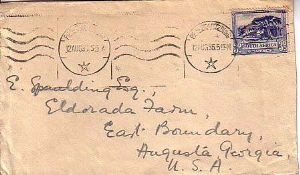 12 AUG 35. 5 15 PM
SOUTH AFRICA
E. Spaulding Esq.,
Eldorada Farm,
East Boundary,
Augusta Georgia,
U. S. A.